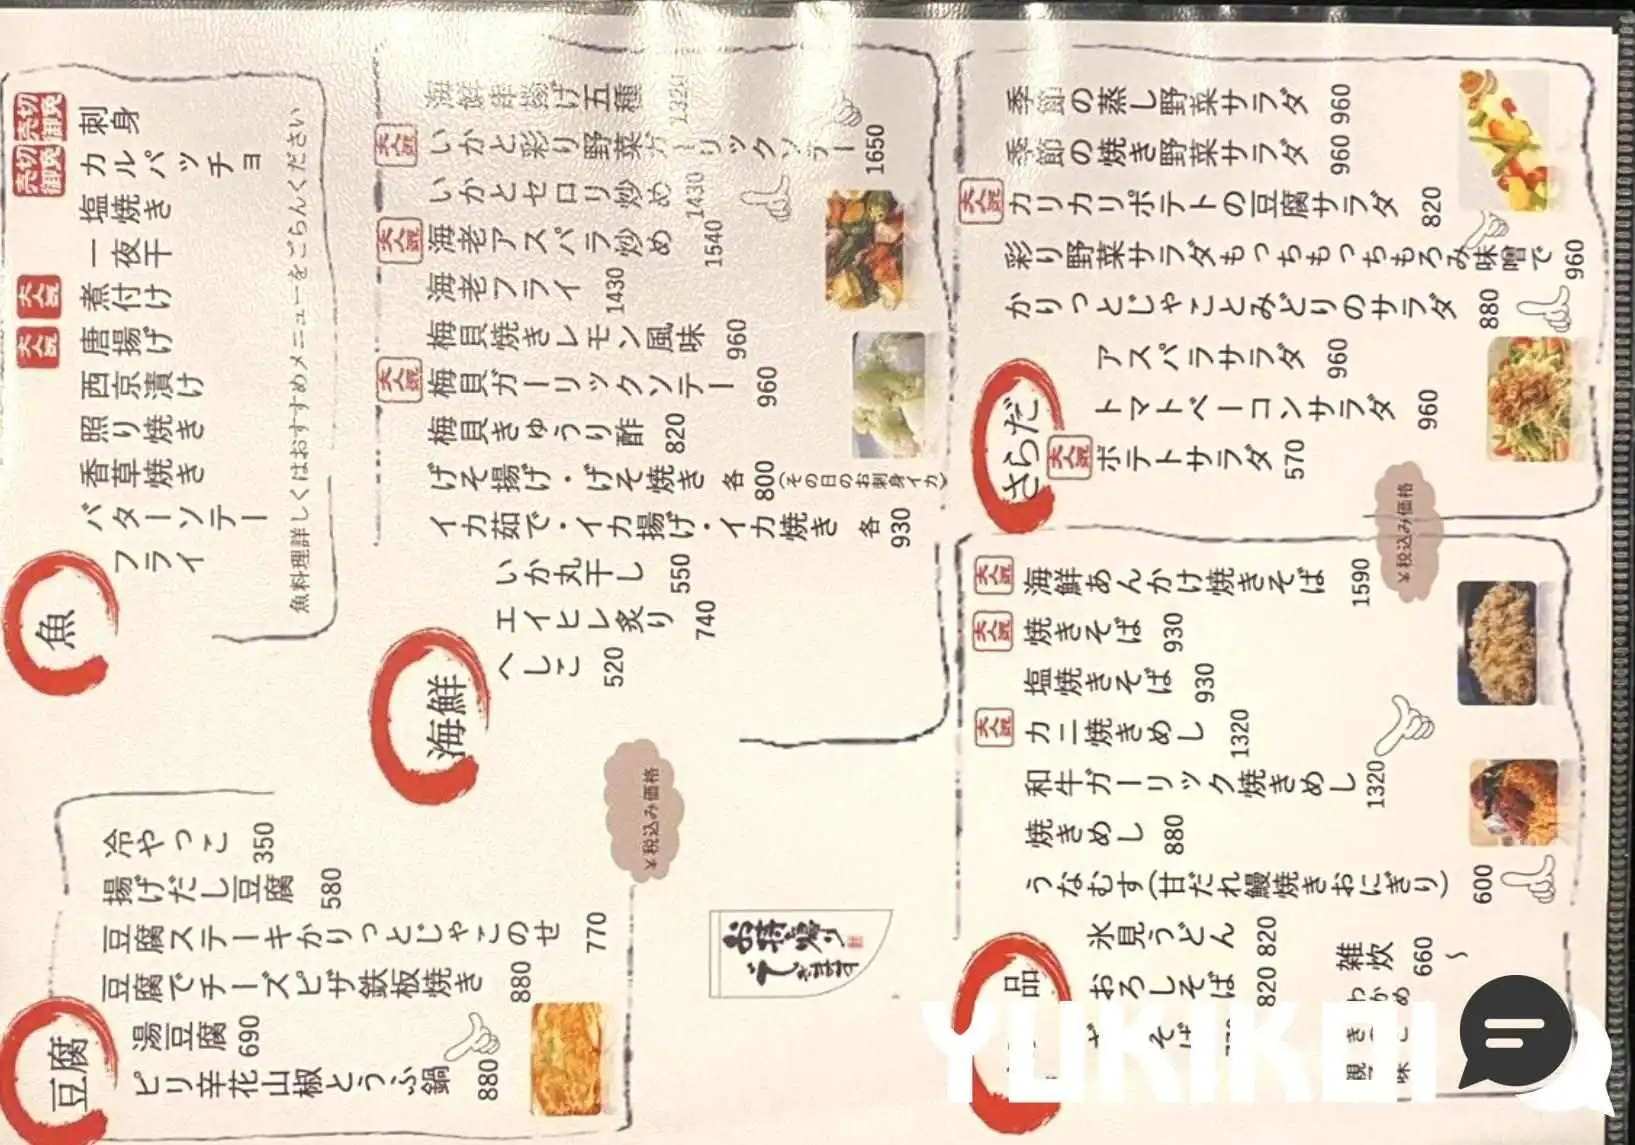 魚
刺身
カルパッチョ
塩焼き
一夜干
煮付け
唐揚げ
西京漬け
照り焼き
香草焼き
バターソテー
フライ
売切御免
売切御免
大人気
大人気
魚料理詳しくはおすすめメニューをごらんください
海鮮
海鮮串揚げ五種 1320
大人気 いかと彩り野菜ガーリックソテー 1650
いかとセロリ炒め 1430
大人気 海老アスパラ炒め 1540
海老フライ 1430
梅貝焼きレモン風味 960
大人気 梅貝ガーリックソテー 960
梅貝きゅうり酢 820
げそ揚げ・げそ焼き 各800(その日のお刺身イカ)
イカ茹で・イカ揚げ・イカ焼き 各930
いか丸干し 550
エイヒレ炙り 740
へしこ 520
豆腐
冷やっこ 350
揚げだし豆腐 580
豆腐ステーキかりっとじゃこのせ 770
豆腐でチーズピザ鉄板焼き 880
湯豆腐 690
ピリ辛花山椒とうふ鍋 880
¥税込み価格
お持ち帰り
できます
さらだ
季節の蒸し野菜サラダ 960
季節の焼き野菜サラダ 960
大人気 カリカリポテトの豆腐サラダ 820
彩り野菜サラダもっちもっちもろみ味噌で 960
かりっとじゃことみどりのサラダ 880
アスパラサラダ 960
トマトベーコンサラダ 960
大人気 ポテトサラダ 570
¥税込み価格
品
大人気 海鮮あんかけ焼きそば 1590
大人気 焼きそば 930
塩焼きそば 930
大人気 カニ焼きめし 1320
和牛ガーリック焼きめし 1320
焼きめし 880
うなむす(甘だれ鰻焼きおにぎり) 600
氷見うどん 820
おろしそば 820
雑炊 660～
わかめ
YUKIKOI